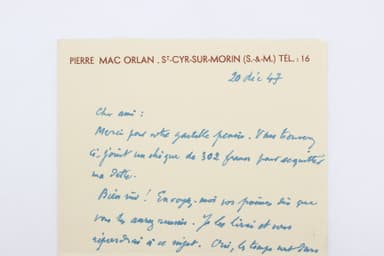 PIERRE MAC ORLAN . ST-CYR-SUR-MORIN (S.-&-M.) TÉL. : 16
20 déc 47
Cher ami :
Merci pour votre gentille pensée. Vous trouverez
ci-joint un chèque de 302 francs pour acquitter
ma dette.
Bien sûr ! Envoyez-moi vos poèmes dès que
vous les aurez réunis. Je les lirai et vous
répondrai à ce sujet. Oui, le temps